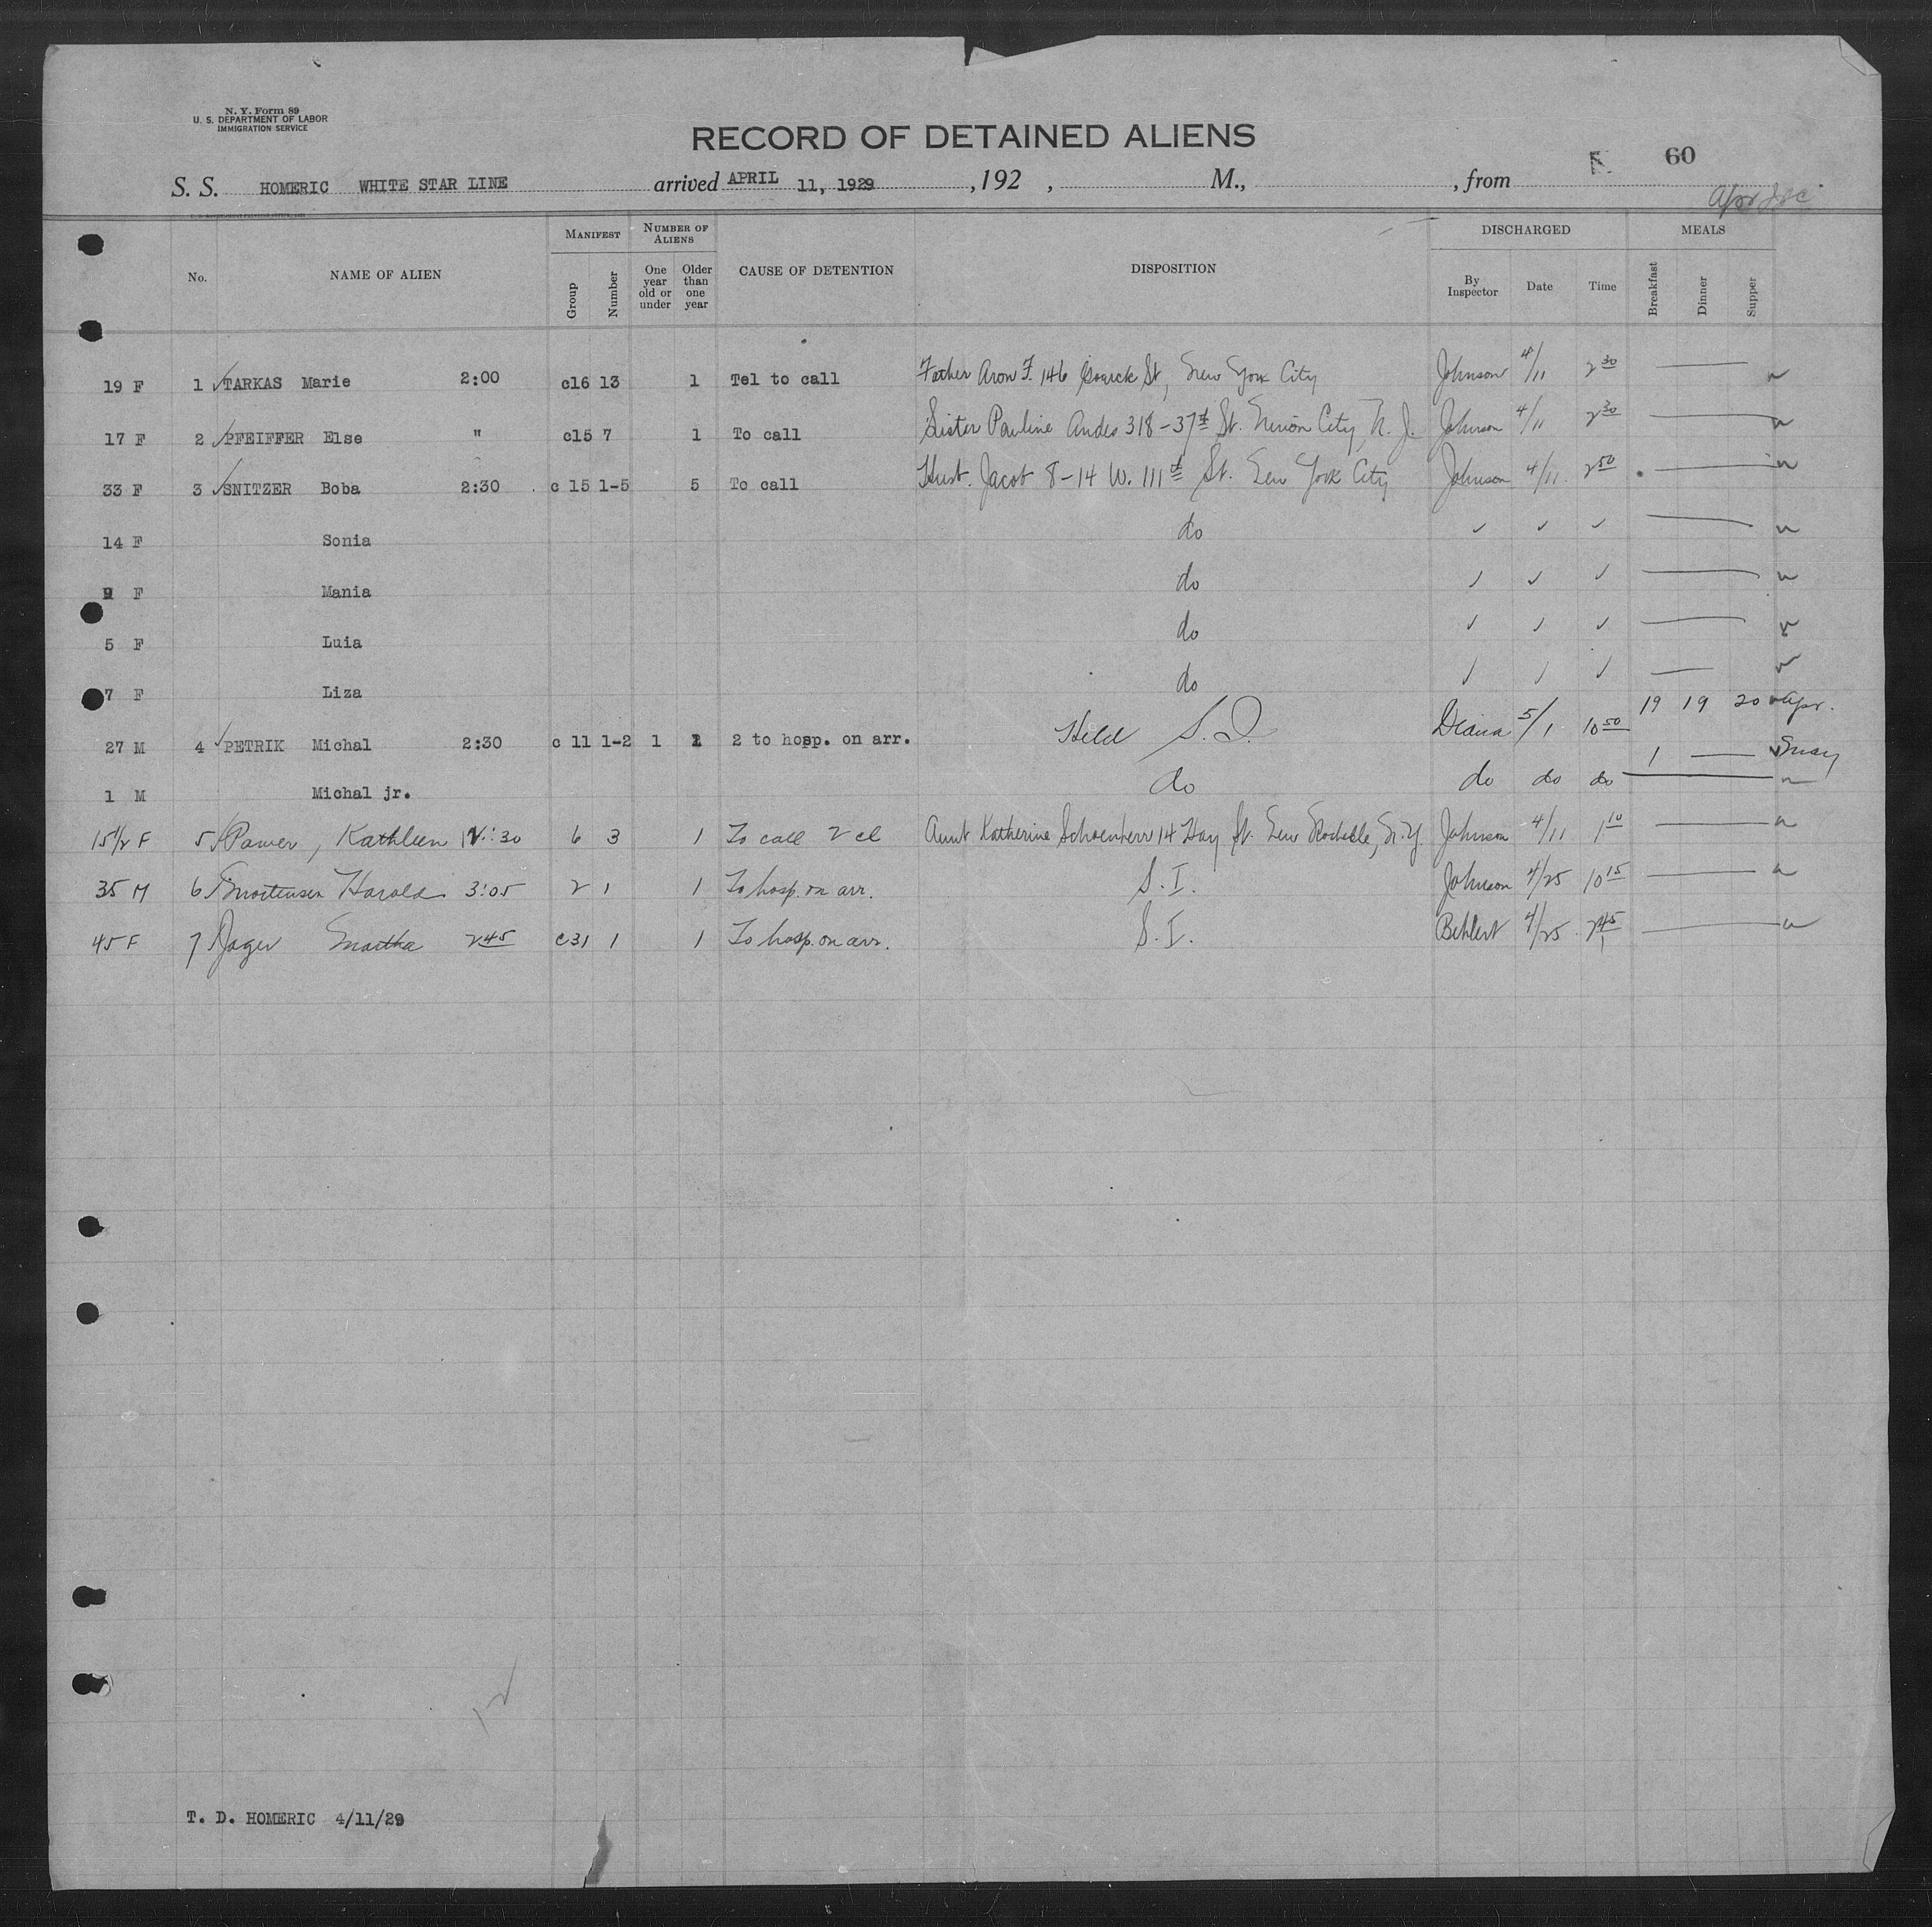 N. Y. Form 89
U. S. DEPARTMENT OF LABOR
IMMIGRATION SERVICE
RECORD OF DETAINED ALIENS
60
S. S. HOMERIC WHITE STAR LINE arrived APRIL 11, 1929, 192 , M., , from
No. NAME OF ALIEN MANIFEST Group Number NUMBER OF ALIENS One year old or under Older than one year CAUSE OF DETENTION DISPOSITION DISCHARGED By Inspector Date Time MEALS Breakfast Dinner Supper
19 F 1 TARKAS Marie 2:00 c16 13 1 Tel to call Father Aron F. 146 Goerck St, New York City Johnson 4/11 2 30
17 F 2 PFEIFFER Else " c15 7 1 To call Sister Pauline Andes 318-37th St. Union City, N. J. Johnson 4/11 2 30
33 F 3 SNITZER Boba 2:30 c 15 1-5 5 To call Husb. Jacob 8-14 W. 111th St. New York City Johnson 4/11 2 50
14 F Sonia do ✓ ✓ ✓
9 F Mania do ✓ ✓ ✓
5 F Luia do ✓ ✓ ✓
7 F Liza do ✓ ✓ ✓
27 M 4 PETRIK Michal 2:30 c 11 1-2 1 1 2 to hosp. on arr. Held S.I. Diana 5/1 10 50 19 19 20 Apr.
1 May
1 M Michal jr. do do do do
15 1/2 F 5 Power, Kathleen 12:30 6 3 1 To call 2 cl Aunt Katherine Schoenherr 14 Hay St. New Rochelle, N.Y. Johnson 4/11 1 10
35 M 6 Mortensen Harold 3:05 2 1 1 To hosp. on arr. S.I. Johnson 4/25 10 15
45 F 7 Jager Martha 2 45 c31 1 1 To hosp. on arr. S.I. Behlert 4/25 2 45
12
T. D. HOMERIC 4/11/29